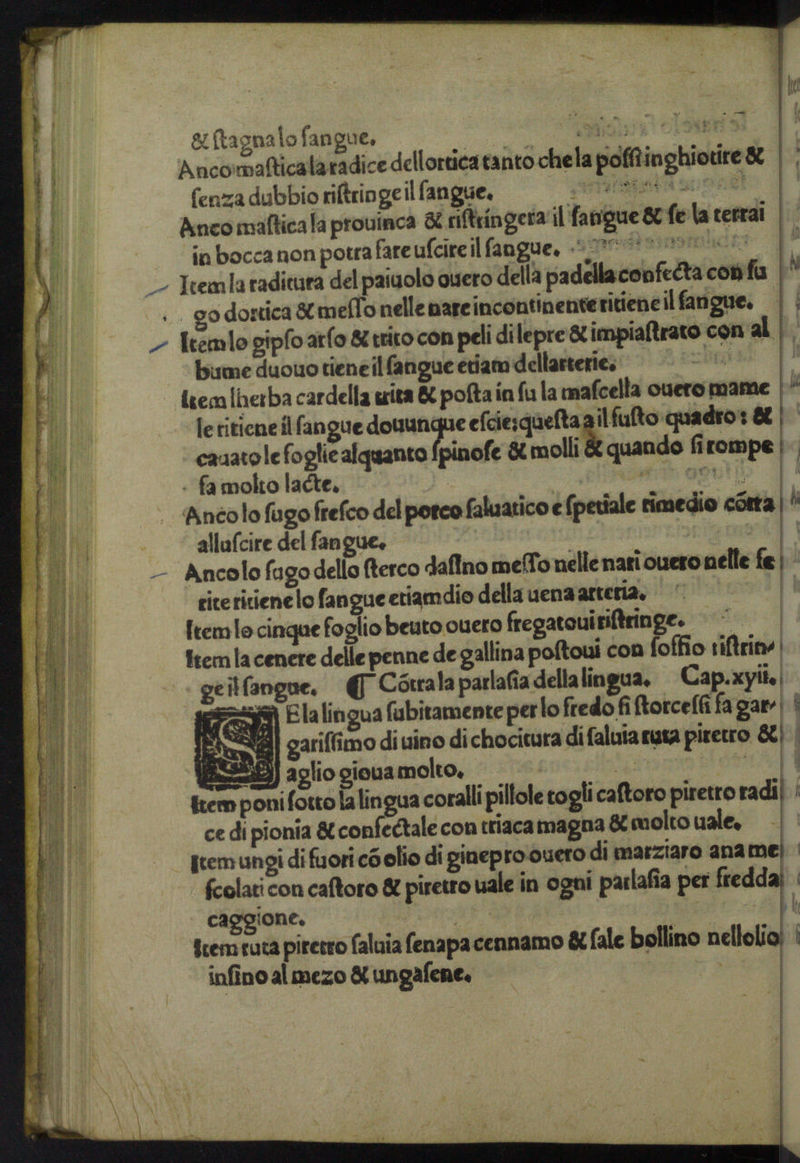 & ſtagna lo ſangue.
Anco maſtica la radice dellortica tanto che la poſſi inghiotire &
ſenza dubbio riſtringe il ſangue.
Anco maſtica la prouinca & riſtringera il ſangue & ſe la terrai
in bocca non potra fare uſcire il ſangue.
Item la raditura del paiuolo ouero della padella confecta con ſu
go dortica & meſſo nelle nare incontinente ritiene il ſangue.
Item lo gipſo arſo & trito con peli di lepre & impiaſtrato con al
bume duouo tiene il ſangue etiam dellarterie.
Item lherba cardella trita & poſta in ſu la maſcella ouero mame
le ritiene il ſangue douunque eſcie; queſta a il fuſto quadro: &
cauato le foglie alquanto ſpinoſe & molli & quando ſi rompe
fa molto lacte.
Anco lo ſugo freſco del porco ſaluatico e ſpetiale rimedio cótra
alluſcire del ſangue.
Anco lo ſugo dello ſterco daſino meſſo nelle nari ouero nelle fe
rite ritiene lo ſangue etiamdio della uena arteria.
Item lo cinque foglio beuto ouero fregatoui riſtringe.
Item la cenere delle penne de gallina poſtoui con ſoffio riſtrin
ge il ſangue. ¶ Cótra la parlaſia della lingua. Cap. xyii.
SE la lingua ſubitamente per lo fredo ſi ſtorceſſi fa gar
gariſſimo di uino di chocitura di ſaluia ruta piretro &
aglio gioua molto.
Item poni ſotto la lingua coralli pillole togli caſtoro piretro radi
ce di pionia & confectale con triaca magna & molto uale.
Item ungi di fuori có olio di ginepro ouero di marziaro ana me
ſcolati con caſtoro & piretro uale in ogni parlaſia per fredda
caggione.
Item ruta piretro ſaluia ſenapa cennamo & ſale bollino nellolio
inſino al mezo & ungaſene.